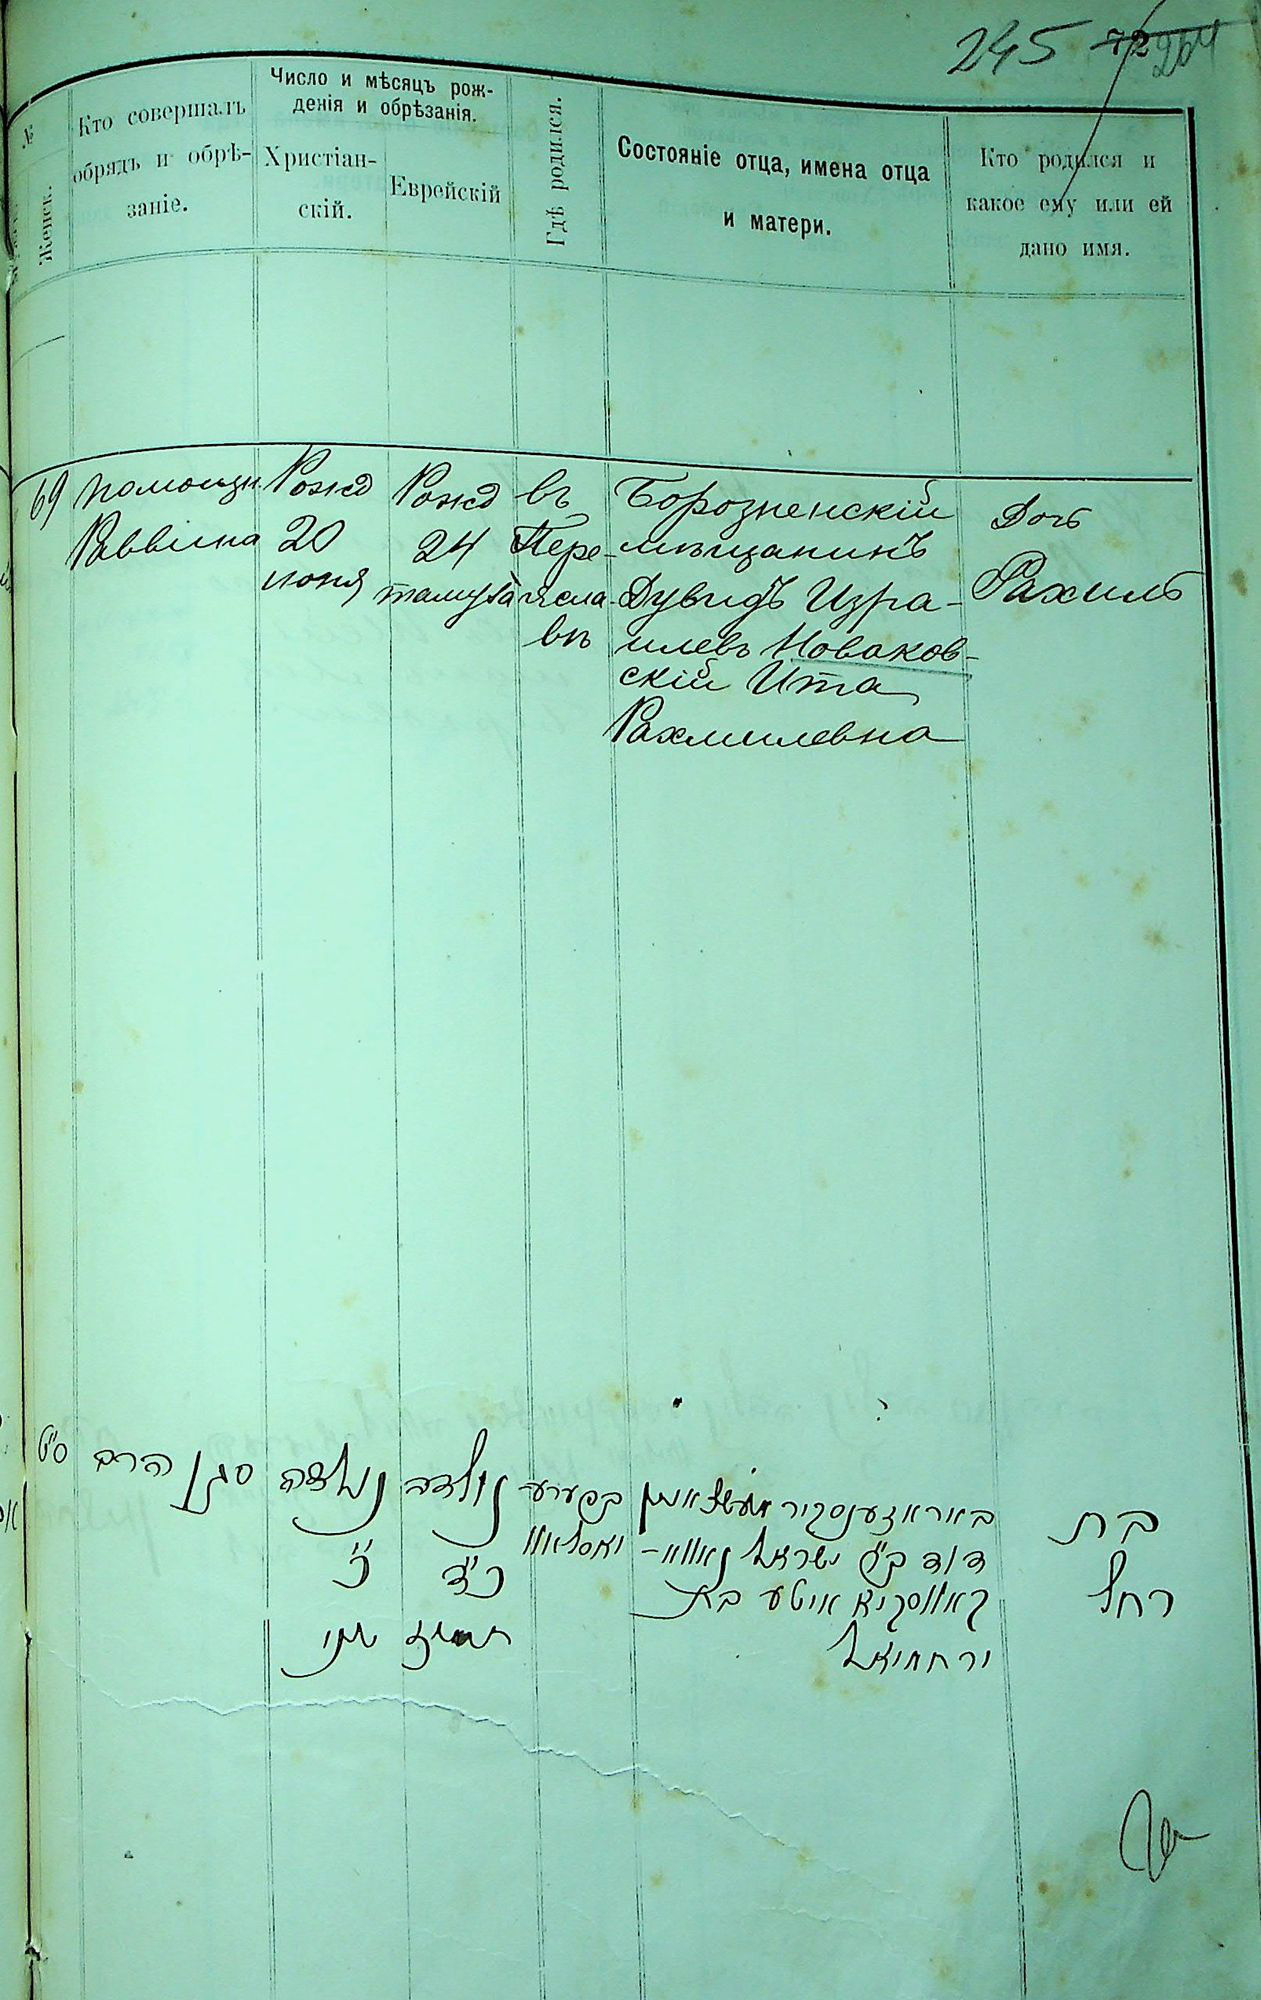 245 72 264
№
Женск.
Кто совершалъ
обрядъ и обрѣ-
заніе.
Число и мѣсяцъ рож-
денія и обрѣзанія.
Христіан-
скій.
Еврейскій
Гдѣ родился.
Состояніе отца, имена отца
и матери.
Кто родился и
какое ему или ей
дано имя.
69
помощн
Раввина
Рожд
20
июня
Рожд
24
тамуза
въ
Пере-
ясла-
вѣ
Борозненскій
мѣщанинъ
Дувидъ Изра-
илевъ Новаков-
скій Ита
Рахмилевна
Дочь
Рахиль
ס״ט
סגן הרב
נולדה
כ׳
יוני
נולדה
כ״ד
תמוז
בפערע-
יאסלאוו
באראזענסקיר
דוד ב״ר ישראל נאווא-
קאווסקי איטע בת
ירחמיאל
בת
רחל